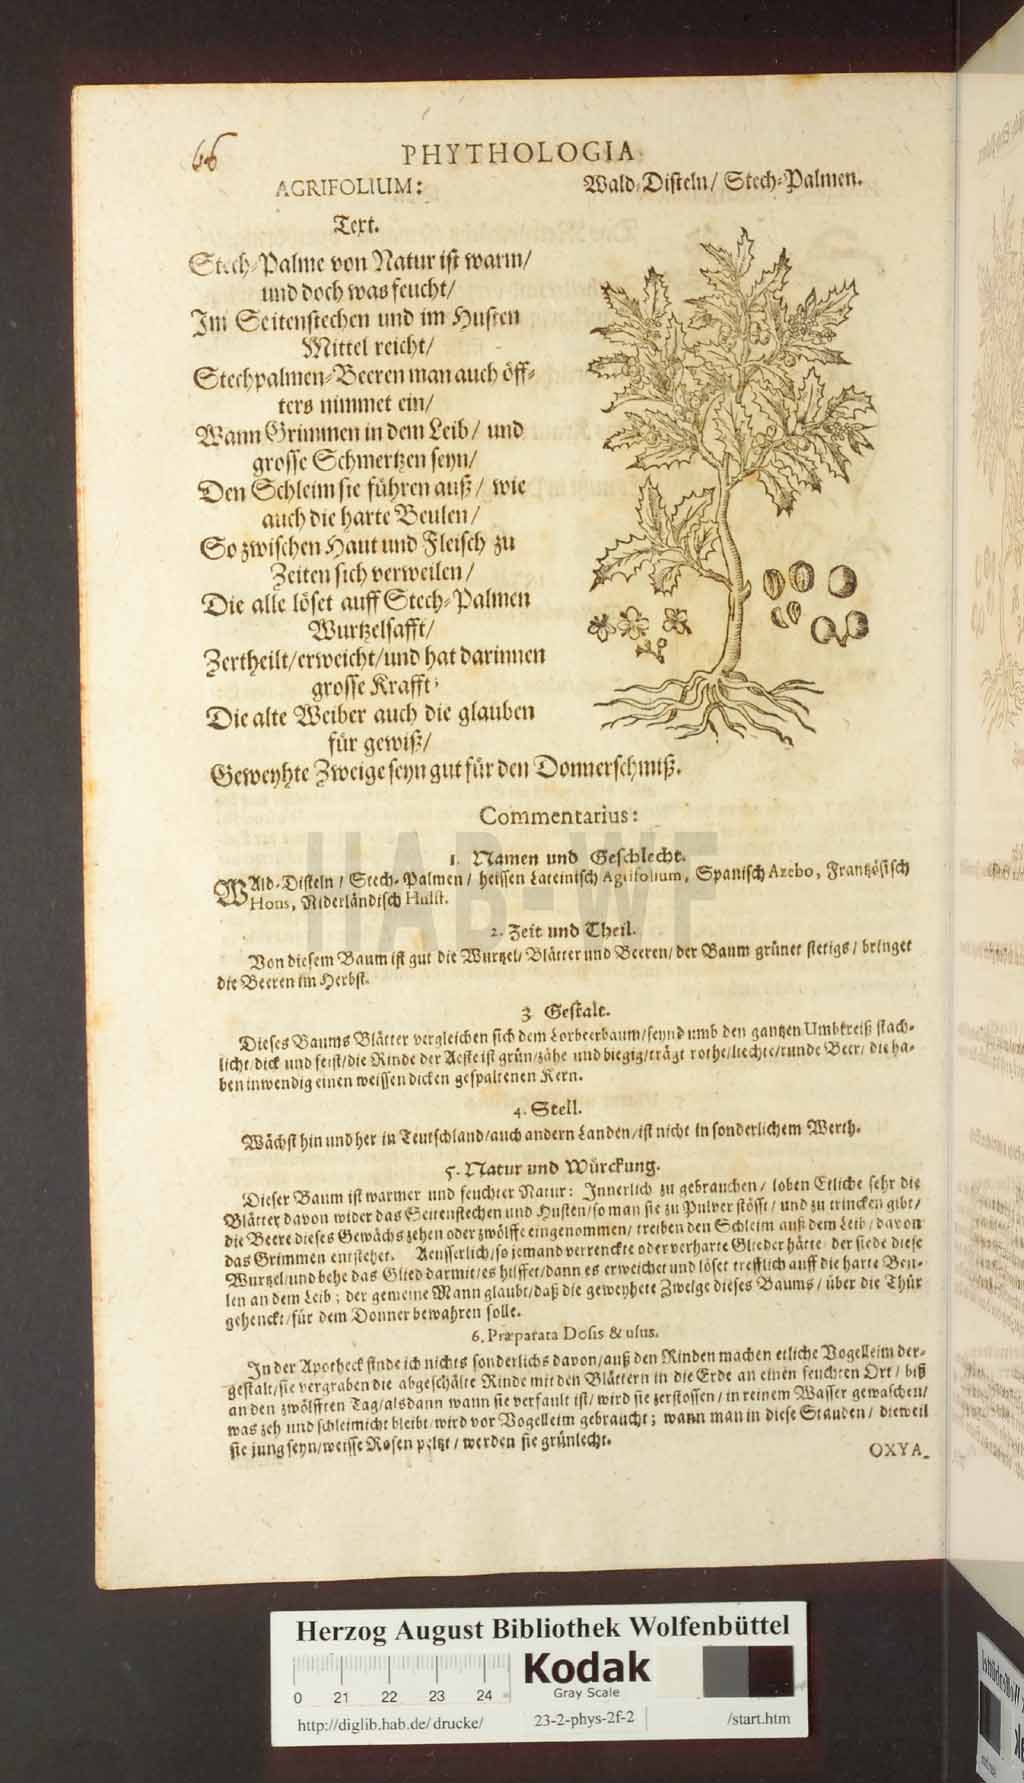 66
PHYTHOLOGIA.
AGRIFOLIUM:
Wald-Disteln/ Stech-Palmen.
Text.
Stech-Palme von Natur ist warm/
und doch was feucht/
Im Seitenstechen und im Husten
Mittel reicht/
Stechpalmen-Beeren man auch öff-
ters nimmet ein/
Wann Grimmen in dem Leib/ und
grosse Schmertzen seyn/
Den Schleim sie führen auß/ wie
auch die harte Beulen/
So zwischen Haut und Fleisch zu
Zeiten sich verweilen/
Die alle löset auff Stech-Palmen
Wurtzelsafft/
Zertheilt/erweicht/und hat darinnen
grosse Krafft;
Die alte Weiber auch die glauben
für gewiß/
Geweyhte Zweige seyn gut für den Donnerschmiß.
Commentarius:
1. Namen und Geschlecht.
WAld-Disteln/ Stech-Palmen/ heissen Lateinisch Agrifolium, Spanisch Azebo, Frantzösisch
Hous, Niderländisch Hulst.
2. Zeit und Theil.
Von diesem Baum ist gut die Wurtzel/ Blätter und Beeren/ der Baum grünet stetigs/ bringet
die Beeren im Herbst.
3 Gestalt.
Dieses Baums Blätter vergleichen sich dem Lorbeerbaum/seynd umb den gantzen Umbkreiß stach-
licht/dick und feist/die Rinde der Aeste ist grün/zähe und biegig/trägt rothe/liechte/runde Beer/ die ha-
ben inwendig einen weissen dicken gespaltenen Kern.
4. Stell.
Wächst hin und her in Teutschland/auch andern Landen/ist nicht in sonderlichem Werth.
5. Natur und Würckung.
Dieser Baum ist warmer und feuchter Natur: Innerlich zu gebrauchen/ loben Etliche sehr die
Blätter davon wider das Seitenstechen und Husten/so man sie zu Pulver stösst/ und zu trincken gibt/
die Beere dieses Gewächs zehen oder zwölffe eingenommen/ treiben den Schleim auß dem Leib/ davon
das Grimmen entstehet. Aeusserlich/so jemand verrenckte oder verharte Glieder hätte/ der siede diese
Wurtzel/und behe das Glied darmit/es hilffet/dann es erweichet und löset trefflich auff die harte Beu-
len an dem Leib; der gemeine Mann glaubt/daß die geweyhete Zweige dieses Baums/ über die Thür
gehenckt/für dem Donner bewahren solle.
6. Præparata Dosis & usus.
In der Apotheck finde ich nichts sonderlichs davon/auß den Rinden machen etliche Vogelleim der-
gestalt/sie vergraben die abgeschälte Rinde mit den Blättern in die Erde an einen feuchten Ort/ biß
an den zwölfften Tag/alsdann wann sie verfault ist/ wird sie zerstossen/ in reinem Wasser gewaschen/
was zeh und schleimicht bleibt/ wird vor Vogelleim gebraucht; wann man in diese Stauden/ dieweil
sie jung seyn/weisse Rosen peltzt/ werden sie grünlecht.
OXYA-
HAB-WF
Herzog August Bibliothek Wolfenbüttel
0 21 22 23 24
Kodak
Gray Scale
http://diglib.hab.de/drucke/ 23-2-phys-2f-2 /start.htm